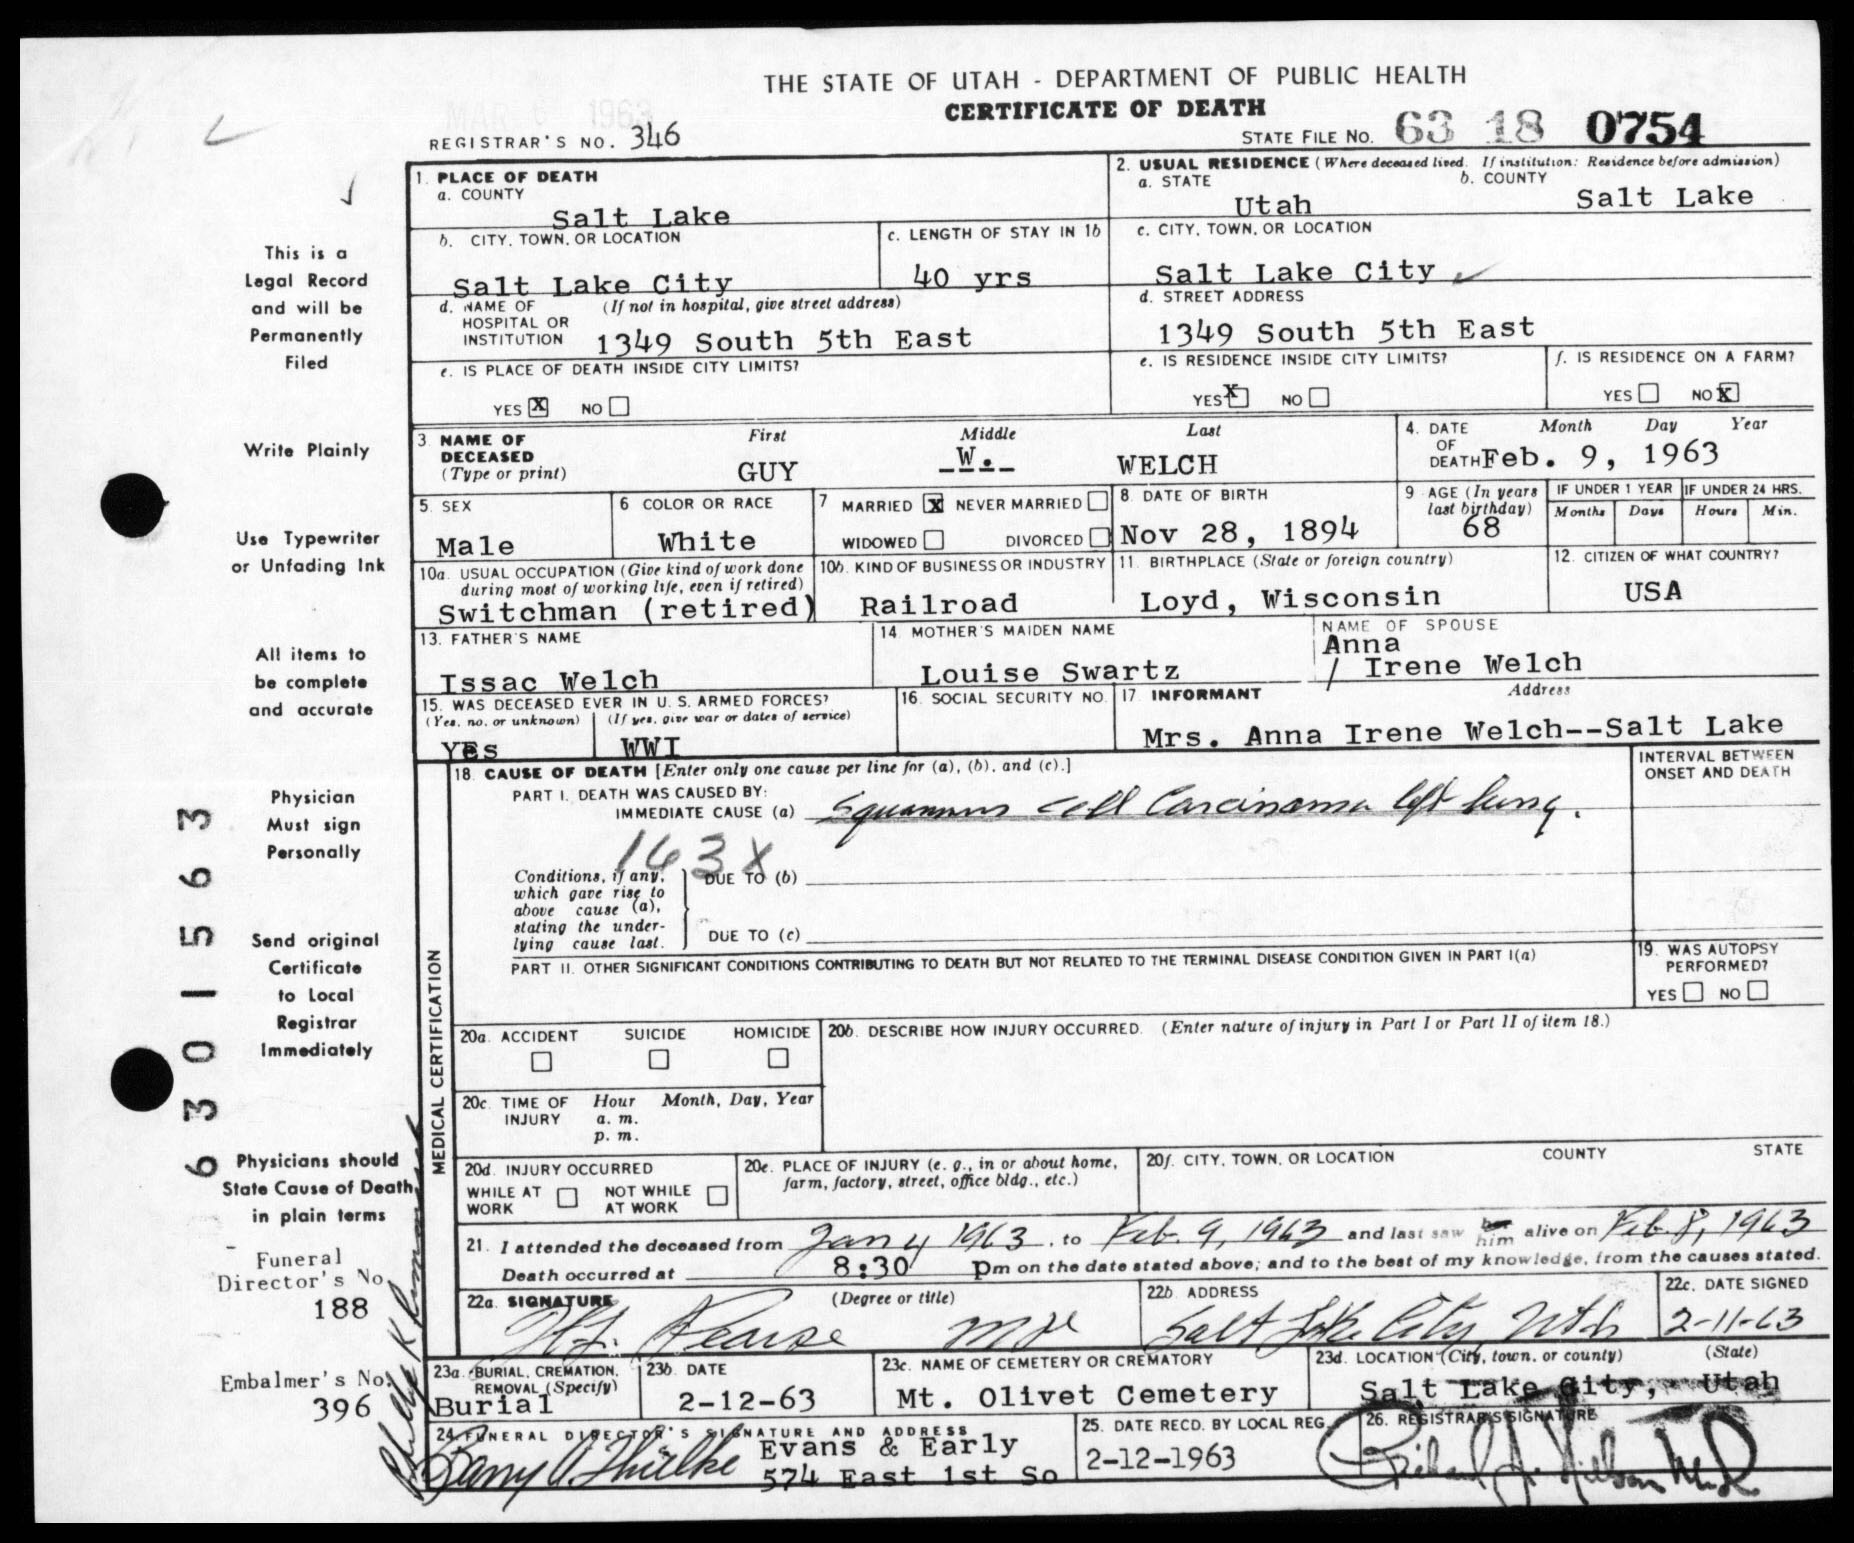 THE STATE OF UTAH - DEPARTMENT OF PUBLIC HEALTH
CERTIFICATE OF DEATH
MAR 6 1963
REGISTRAR'S NO. 346
STATE FILE NO. 63 18 0754
1. PLACE OF DEATH
a. COUNTY
Salt Lake
2. USUAL RESIDENCE (Where deceased lived. If institution: Residence before admission)
a. STATE b. COUNTY
Utah Salt Lake
b. CITY, TOWN, OR LOCATION
Salt Lake City
c. LENGTH OF STAY IN 1b
40 yrs
c. CITY, TOWN, OR LOCATION
Salt Lake City
d. NAME OF (If not in hospital, give street address)
HOSPITAL OR
INSTITUTION 1349 South 5th East
d. STREET ADDRESS
1349 South 5th East
e. IS PLACE OF DEATH INSIDE CITY LIMITS?
YES X NO
e. IS RESIDENCE INSIDE CITY LIMITS?
YES X NO
f. IS RESIDENCE ON A FARM?
YES NO X
3. NAME OF DECEASED
(Type or print)
First Middle Last
GUY W. WELCH
4. DATE OF DEATH Month Day Year
Feb. 9, 1963
5. SEX
Male
6 COLOR OR RACE
White
7 MARRIED X NEVER MARRIED
WIDOWED DIVORCED
8. DATE OF BIRTH
Nov 28, 1894
9 AGE (In years
last birthday)
68
IF UNDER 1 YEAR IF UNDER 24 HRS.
Months Days Hours Min.
10a. USUAL OCCUPATION (Give kind of work done
during most of working life, even if retired)
Switchman (retired)
10b. KIND OF BUSINESS OR INDUSTRY
Railroad
11. BIRTHPLACE (State or foreign country)
Loyd, Wisconsin
12. CITIZEN OF WHAT COUNTRY?
USA
13. FATHER'S NAME
Issac Welch
14. MOTHER'S MAIDEN NAME
Louise Swartz
NAME OF SPOUSE
Anna
/ Irene Welch
15. WAS DECEASED EVER IN U. S. ARMED FORCES?
(Yes, no, or unknown) (If yes, give war or dates of service)
Yes WWI
16. SOCIAL SECURITY NO.
17 INFORMANT Address
Mrs. Anna Irene Welch--Salt Lake
MEDICAL CERTIFICATION
18. CAUSE OF DEATH [Enter only one cause per line for (a), (b), and (c).]
INTERVAL BETWEEN
ONSET AND DEATH
PART I. DEATH WAS CAUSED BY:
IMMEDIATE CAUSE (a) Squamous cell Carcinoma left lung.
163X
Conditions, if any,
which gave rise to
above cause (a),
stating the under-
lying cause last.
DUE TO (b)
DUE TO (c)
PART II. OTHER SIGNIFICANT CONDITIONS CONTRIBUTING TO DEATH BUT NOT RELATED TO THE TERMINAL DISEASE CONDITION GIVEN IN PART I(a)
19. WAS AUTOPSY
PERFORMED?
YES NO
20a. ACCIDENT SUICIDE HOMICIDE
20b. DESCRIBE HOW INJURY OCCURRED. (Enter nature of injury in Part I or Part II of item 18.)
20c. TIME OF INJURY Hour Month, Day, Year
a. m.
p. m.
20d. INJURY OCCURRED
WHILE AT WORK NOT WHILE AT WORK
20e. PLACE OF INJURY (e. g., in or about home,
farm, factory, street, office bldg., etc.)
20f. CITY, TOWN, OR LOCATION COUNTY STATE
21. I attended the deceased from Jan 4 1963, to Feb. 9, 1963 and last saw her him alive on Feb 8, 1963
Death occurred at 8:30 pm on the date stated above; and to the best of my knowledge, from the causes stated.
22a. SIGNATURE (Degree or title)
Pearse MD
22b. ADDRESS
Salt Lake City, Utah
22c. DATE SIGNED
2-11-63
23a. BURIAL, CREMATION,
REMOVAL (Specify)
Burial
23b. DATE
2-12-63
23c. NAME OF CEMETERY OR CREMATORY
Mt. Olivet Cemetery
23d. LOCATION (City, town, or county) (State)
Salt Lake City, Utah
24. FUNERAL DIRECTOR'S SIGNATURE AND ADDRESS
Evans & Early
574 East 1st So
25. DATE RECD. BY LOCAL REG.
2-12-1963
26. REGISTRAR'S SIGNATURE
This is a
Legal Record
and will be
Permanently
Filed
Write Plainly
Use Typewriter
or Unfading Ink
All items to
be complete
and accurate
Physician
Must sign
Personally
Send original
Certificate
to Local
Registrar
Immediately
Physicians should
State Cause of Death
in plain terms
Funeral
Director's No
188
Embalmer's No.
396
6301563